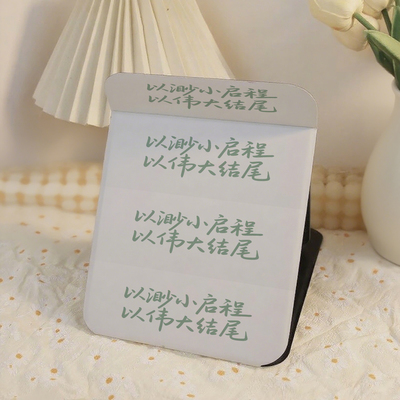 以渺小启程
以伟大结尾
以渺小启程
以伟大结尾
以渺小启程
以伟大结尾
以渺小启程
以伟大结尾